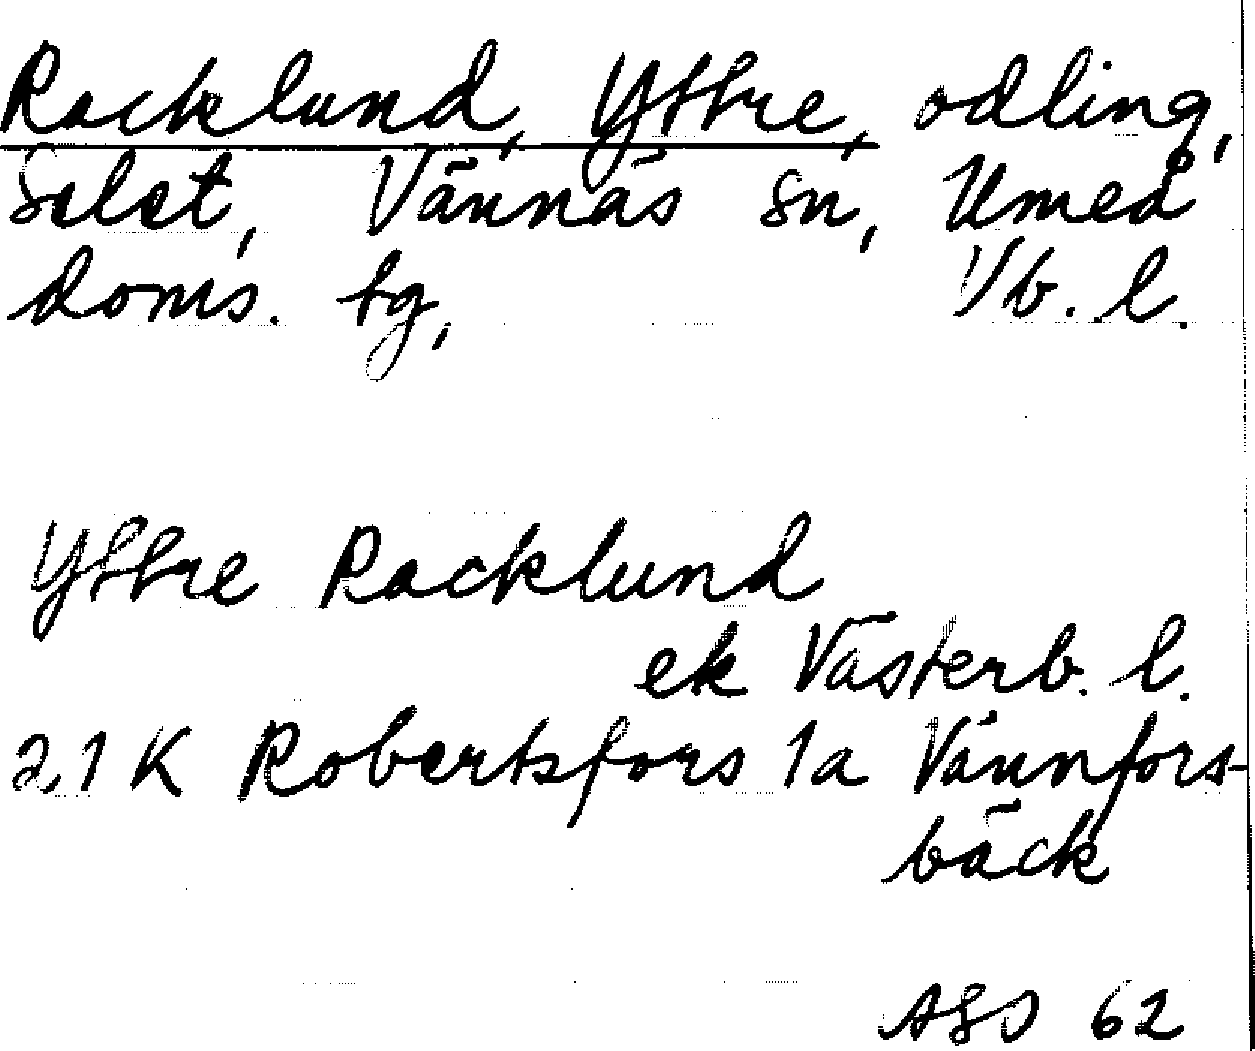 Racklund, Yttre, odling,
Selet, Vännäs sn, Umeå
doms. tg, Vb. l.
Yttre Racklund
ek Västerb. l.
21 K Robertsfors 1a Vännfors-
bäck
ASD 62